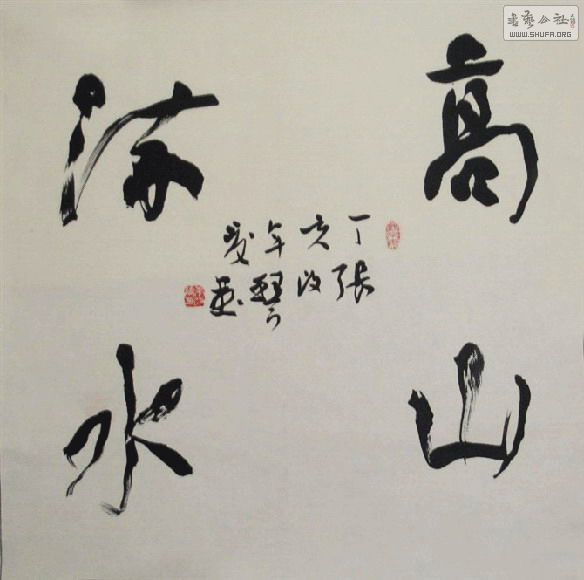 高山
流水
丁亥年夏
张改琴
書藝公社
WWW.SHUFA.ORG